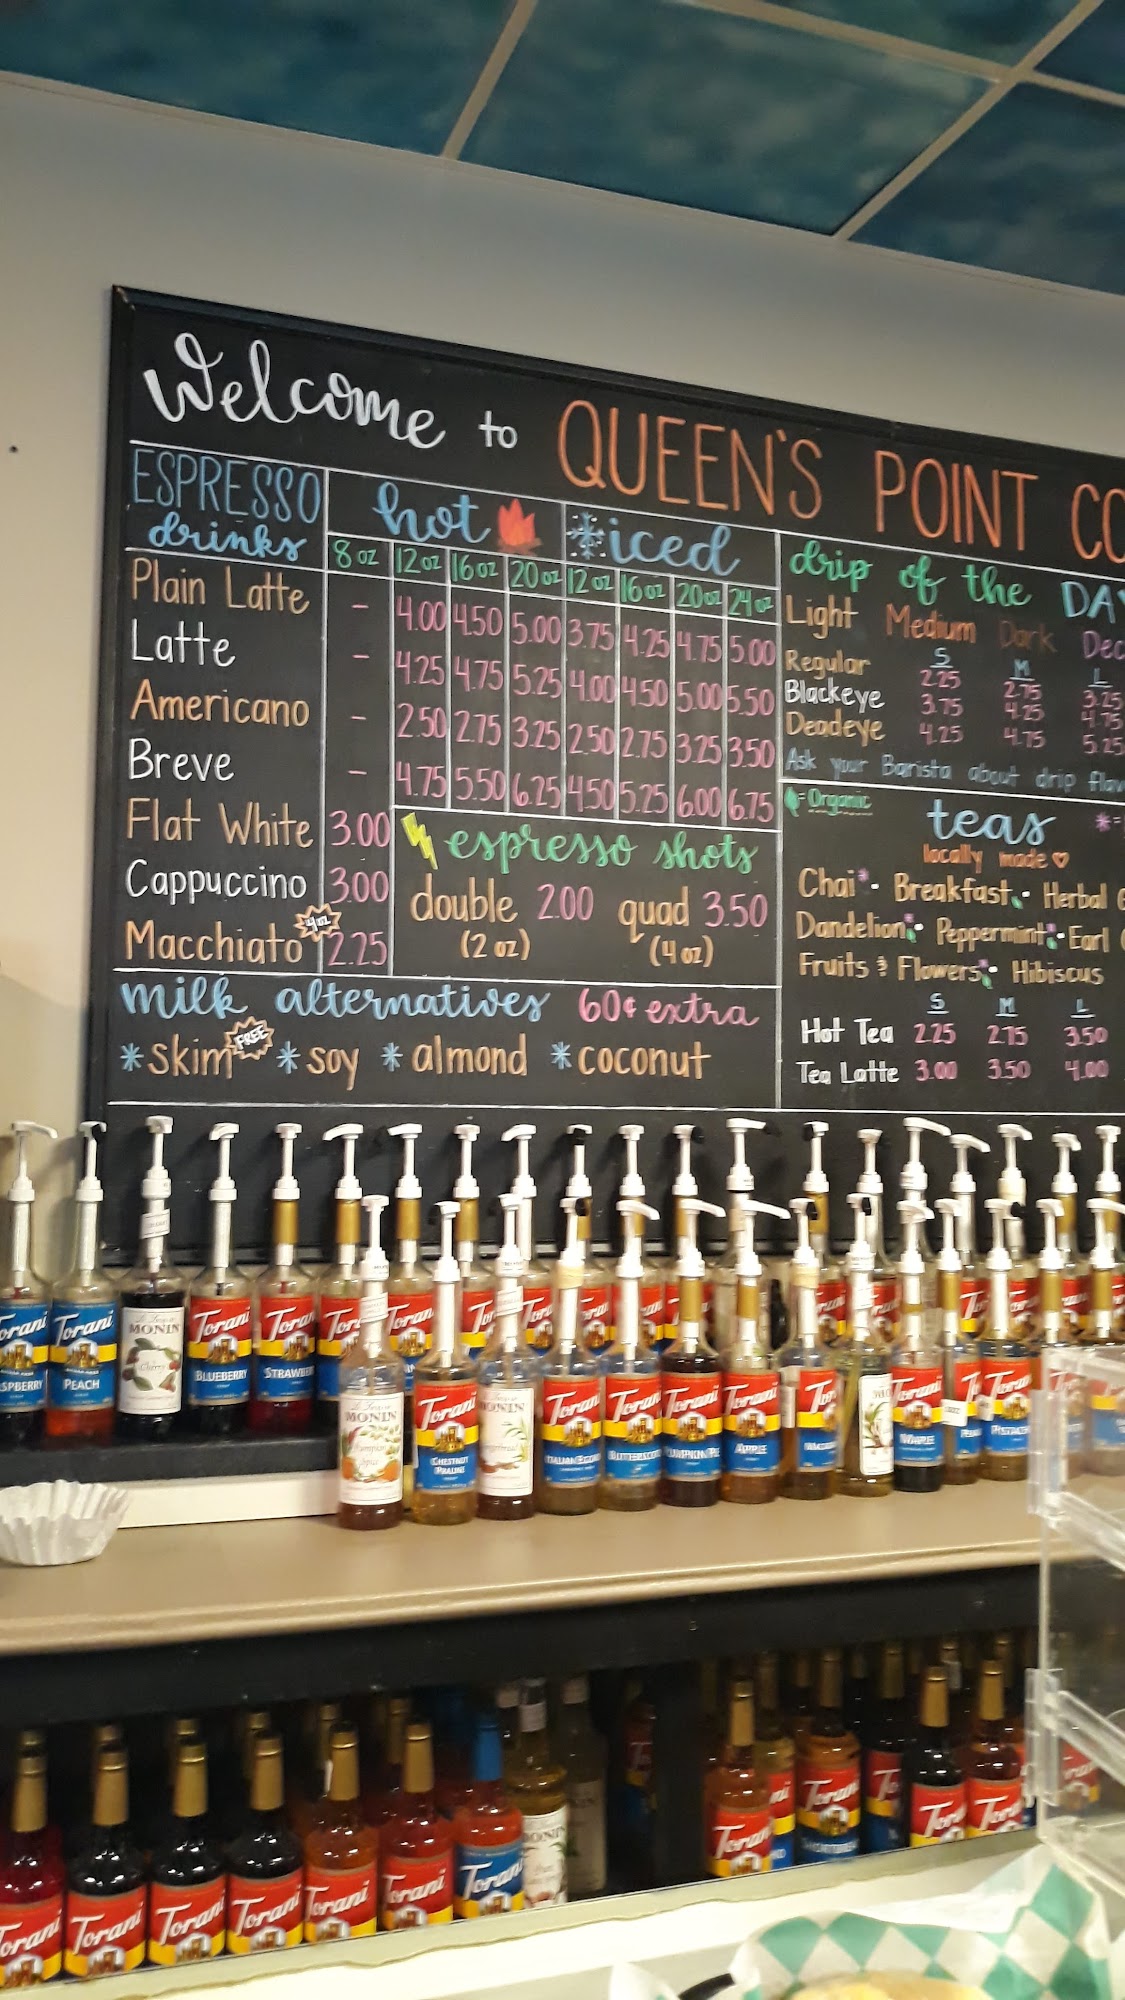 Welcome to QUEEN'S POINT CO
ESPRESSO drinks
hot
iced
8 oz 12 oz 16 oz 20 oz 12 oz 16 oz 20 oz 24 oz
Plain Latte - 4.00 4.50 5.00 3.75 4.25 4.75 5.00
Latte - 4.25 4.75 5.25 4.00 4.50 5.00 5.50
Americano - 2.50 2.75 3.25 2.50 2.75 3.25 3.50
Breve - 4.75 5.50 6.25 4.50 5.25 6.00 6.75
Flat White 3.00
Cappuccino 3.00
Macchiato 4 oz 2.25
espresso shots
double 2.00 quad 3.50
(2 oz) (4 oz)
milk alternatives 60¢ extra
*skim FREE *soy *almond *coconut
drip of the DAY
Light Medium Dark Dec
S M L
Regular 2.25 2.75 3.25
Blackeye 3.75 4.25 4.75
Deadeye 4.25 4.75 5.25
Ask your Barista about drip flav
=Organic
teas *=
locally made
Chai* • Breakfast • Herbal
Dandelion • Peppermint* • Earl
Fruits & Flowers • Hibiscus
S M L
Hot Tea 2.25 2.75 3.50
Tea Latte 3.00 3.50 4.00
Torani
Torani
PEACH
MONIN
Cherry
Torani
BLUEBERRY
Torani
Torani
MONIN
Pumpkin Spice
Torani
CHESTNUT PRALINE
MONIN
Torani
Torani
BUTTERSCOTCH
Torani
PUMPKIN PIE
Torani
APPLE
Torani
MAPLE
Torani
Torani
Torani
Torani
Torani
Torani
Torani
Torani
MONIN
Torani
Torani
Torani